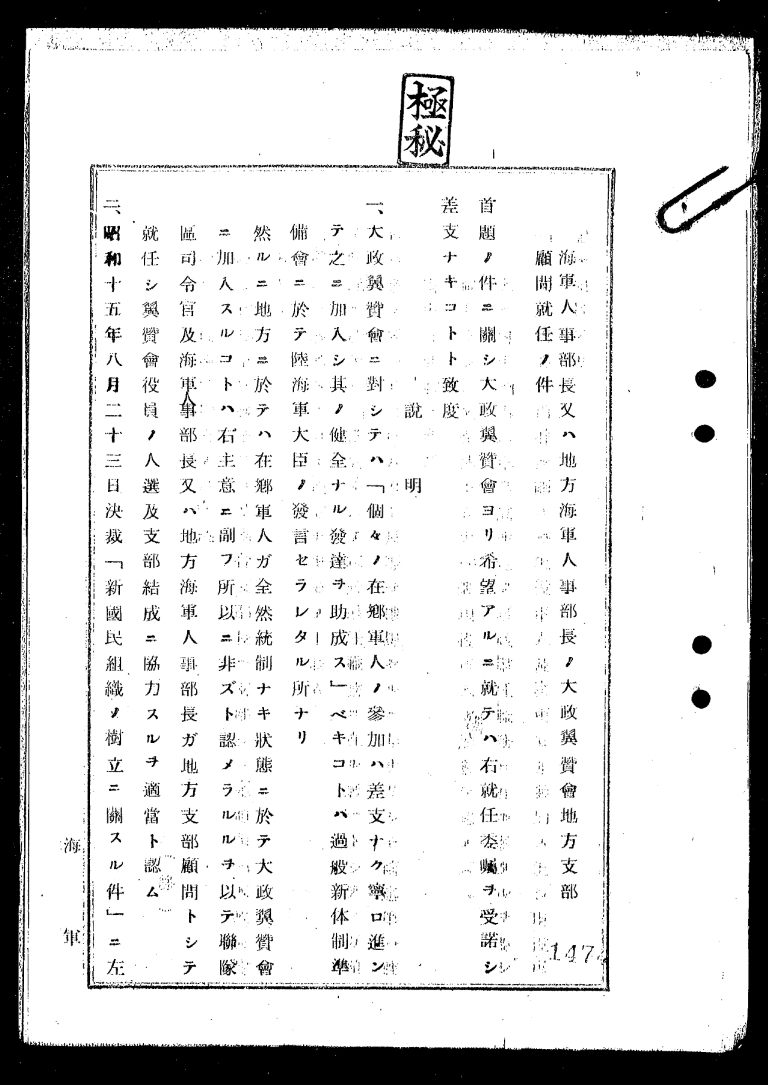 極秘
海軍人事部長又ハ地方海軍人事部長ノ大政翼贊會地方支部
顧問就任ノ件
首題ノ件ニ關シ大政翼贊會ヨリ希望アルニ就テハ右就任委囑ヲ受諾シ
差支ナキコトト致度
說明
一、大政翼贊會ニ對シテハ「個々ノ在鄕軍人ノ參加ハ差支ナク寧ロ進ン
テ之ニ加入シ其ノ健全ナル發達ヲ助成ス」ベキコトハ過般新体制準
備會ニ於テ陸海軍大臣ノ發言セラレタル所ナリ
然ルニ地方ニ於テハ在鄕軍人ガ全然統制ナキ狀態ニ於テ大政翼贊會
ニ加入スルコトハ右主意ニ副フ所以ニ非ズト認メラルルヲ以テ聯隊
區司令官及海軍人事部長又ハ地方海軍人事部長ガ地方支部顧問トシテ
就任シ翼贊會役員ノ人選及支部結成ニ協力スルヲ適當ト認ム
二、昭和十五年八月二十三日決裁「新國民組織ノ樹立ニ關スル件」ニ左
海軍
147